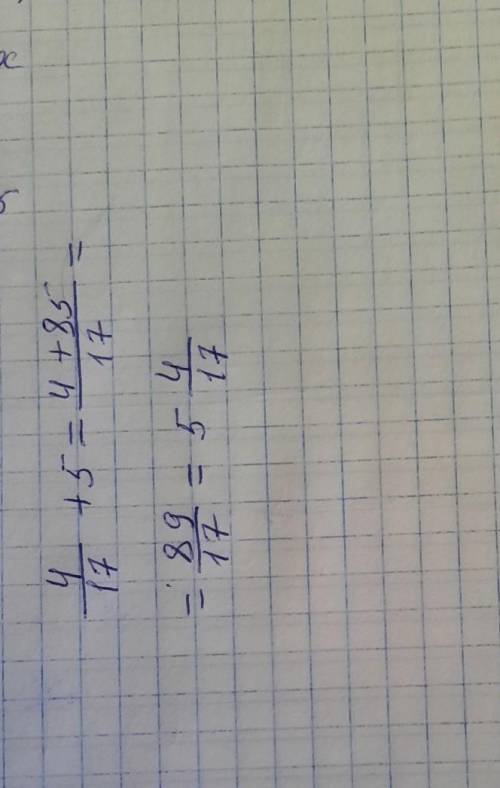 4/17 + 5 = (4 + 85)/17 =
= 89/17 = 5 4/17